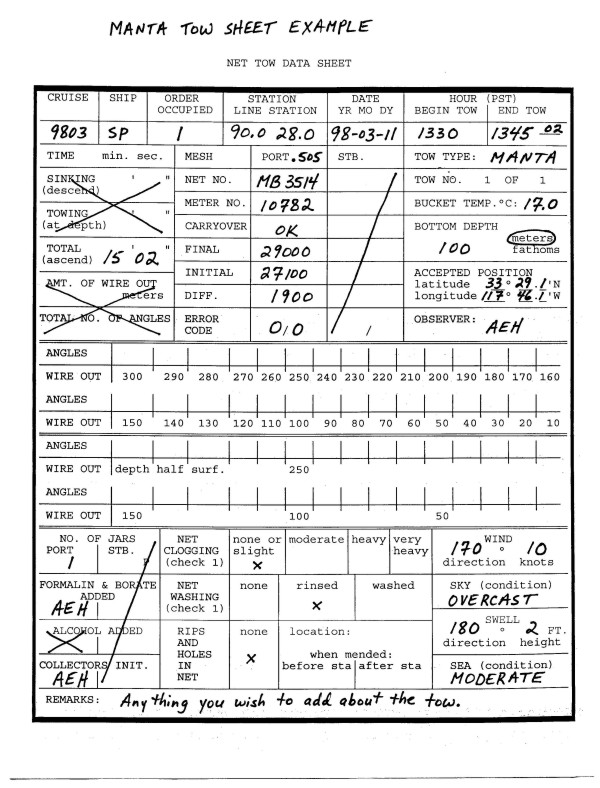 MANTA TOW SHEET EXAMPLE
NET TOW DATA SHEET
CRUISE SHIP ORDER OCCUPIED STATION LINE STATION DATE YR MO DY HOUR (PST) BEGIN TOW END TOW
9803 SP 1 90.0 28.0 98-03-11 1330 1345 02
TIME min. sec. MESH PORT .505 STB. TOW TYPE: MANTA
SINKING (descend) ' " NET NO. MB3514 TOW NO. 1 OF 1
TOWING (at depth) ' " METER NO. 10782 BUCKET TEMP.°C: 17.0
CARRYOVER OK BOTTOM DEPTH
TOTAL (ascend) 15 ' 02 " FINAL 29000 100 meters fathoms
AMT. OF WIRE OUT meters INITIAL 27100 ACCEPTED POSITION
latitude 33° 29.1'N
DIFF. 1900 longitude 117° 46.1'W
TOTAL NO. OF ANGLES ERROR CODE 0/0 / OBSERVER: AEH
ANGLES
WIRE OUT 300 290 280 270 260 250 240 230 220 210 200 190 180 170 160
ANGLES
WIRE OUT 150 140 130 120 110 100 90 80 70 60 50 40 30 20 10
ANGLES
WIRE OUT depth half surf. 250
ANGLES
WIRE OUT 150 100 50
NO. OF JARS PORT STB. NET CLOGGING (check 1) none or slight moderate heavy very heavy WIND
1 x 170 ° 10
direction knots
FORMALIN & BORATE ADDED NET WASHING (check 1) none rinsed washed SKY (condition)
AEH x OVERCAST
ALCOHOL ADDED RIPS AND HOLES IN NET none location: SWELL
180 ° 2 FT.
direction height
x when mended:
COLLECTORS INIT. before sta after sta SEA (condition)
AEH MODERATE
REMARKS: Anything you wish to add about the tow.